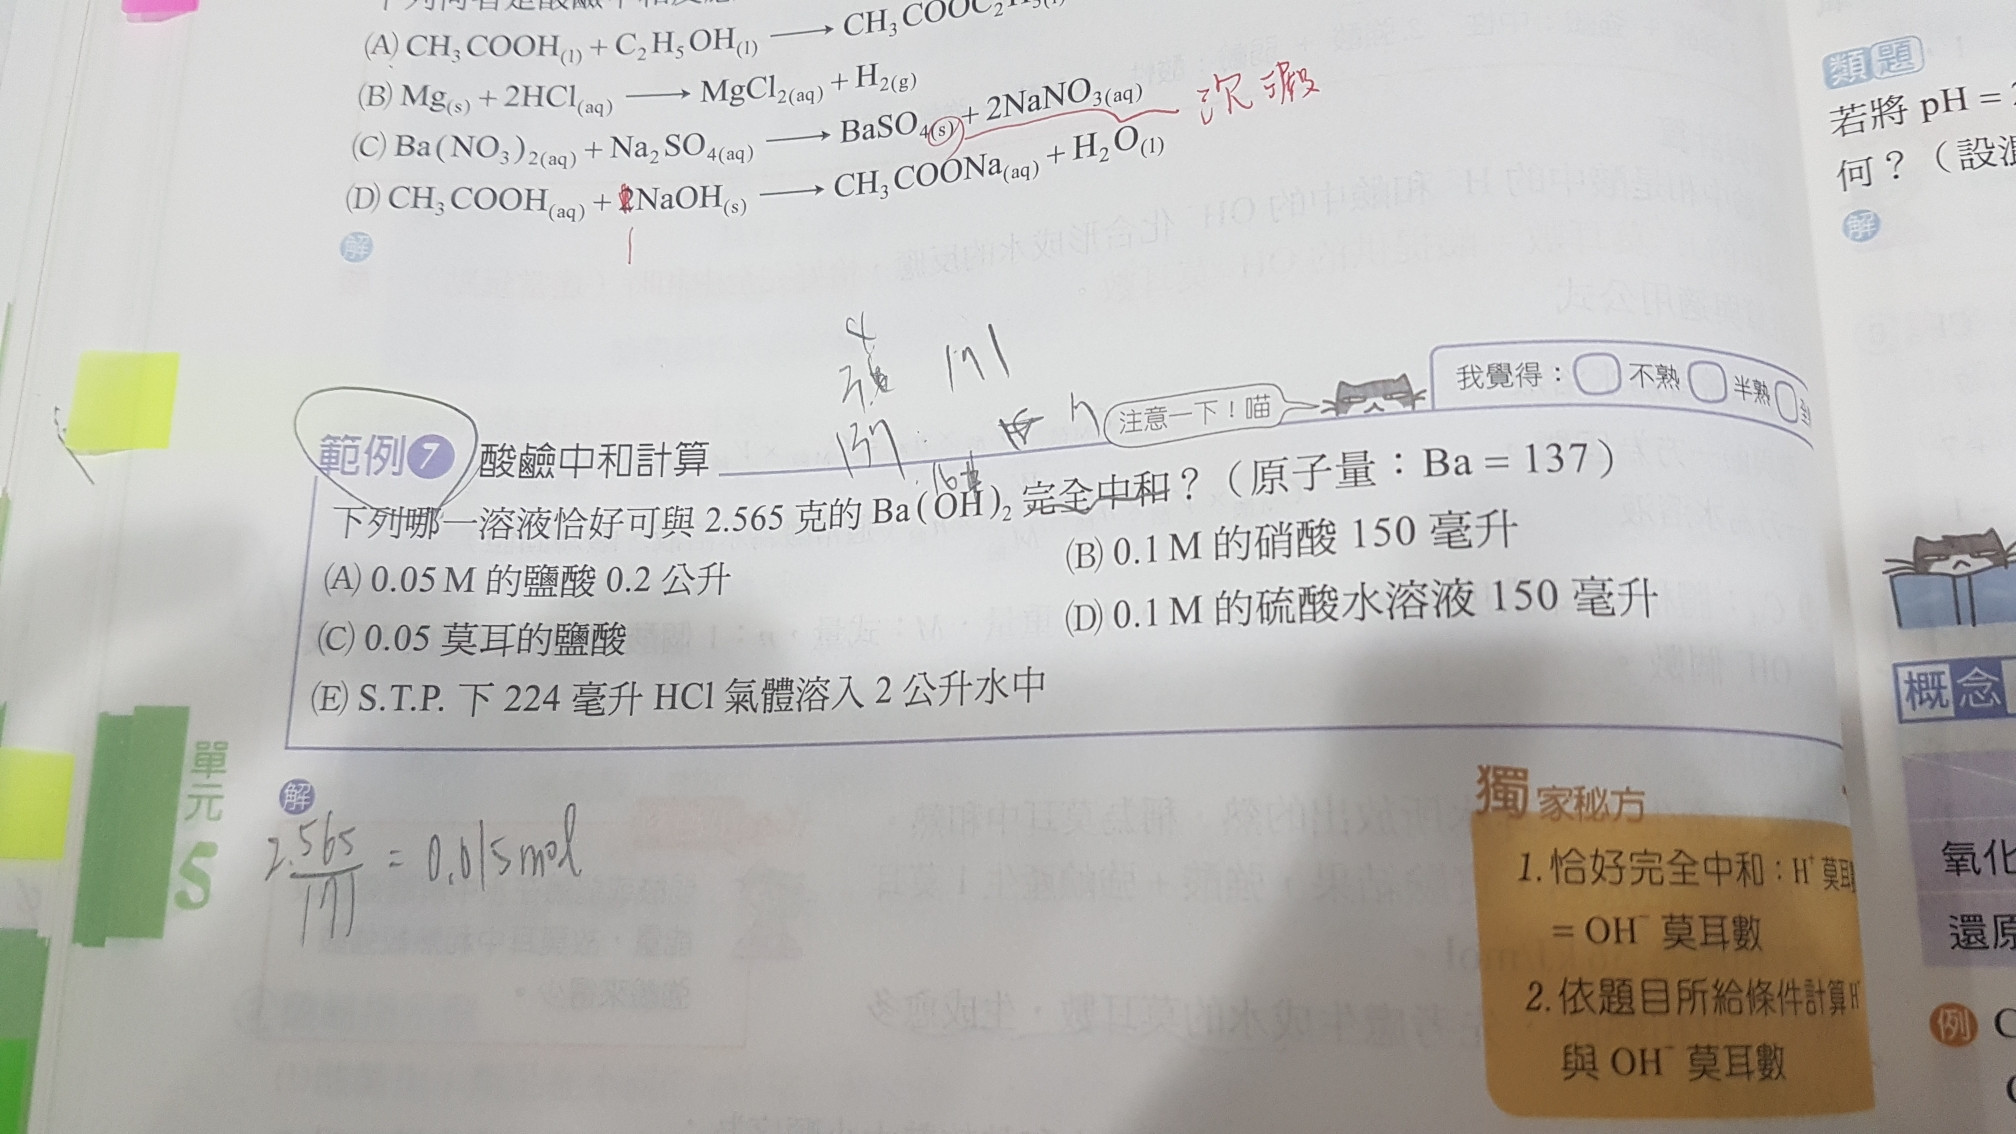 (A) CH₃COOH(l) + C₂H₅OH(l) ⟶ CH₃COOC₂H₅(l)
(B) Mg(s) + 2HCl(aq) ⟶ MgCl₂(aq) + H₂(g)
(C) Ba(NO₃)₂(aq) + Na₂SO₄(aq) ⟶ BaSO₄(s) + 2NaNO₃(aq)
(D) CH₃COOH(aq) + NaOH(s) ⟶ CH₃COONa(aq) + H₂O(l)
解
1
171
137
16
注意一下!喵
我覺得: 不熟 半熟
範例 7 酸鹼中和計算
下列哪一溶液恰好可與 2.565 克的 Ba(OH)₂ 完全中和?(原子量:Ba = 137)
(A) 0.05 M 的鹽酸 0.2 公升
(B) 0.1 M 的硝酸 150 毫升
(C) 0.05 莫耳的鹽酸
(D) 0.1 M 的硫酸水溶液 150 毫升
(E) S.T.P. 下 224 毫升 HCl 氣體溶入 2 公升水中
解
2.565/171 = 0.015 mol
獨家秘方
1. 恰好完全中和:H⁺ 莫耳
= OH⁻ 莫耳數
2. 依題目所給條件計算 H⁺
與 OH⁻ 莫耳數
單元
5
類題
若將 pH =
何?(設
解
概念
氧化
還原
例